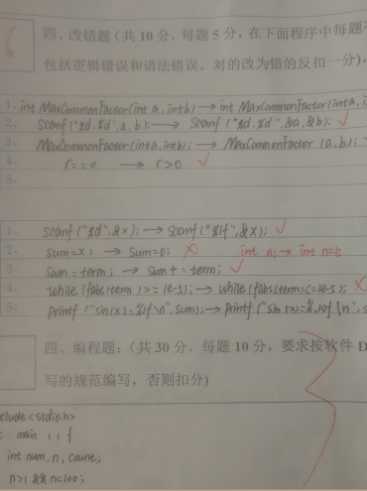 四、改错题（共 10 分，每题 5 分，在下面程序中每题
包括逻辑错误和语法错误，对的改为错的反扣一分）
1. int MaxCommonFactor(int a, int b) → int MaxCommonFactor(int a, i
2. scanf("%d,%d",a,b); → scanf("%d,%d",&a,&b); ✓
3. MaxCommonFactor(int a, int b); → MaxCommonFactor (a,b);
4. r==0 → r>0 ✓
5.
1. scanf("%d",&x); → scanf("%lf",&x); ✓
2. sum=x; → sum=0; ✗ int n; → int n=1;
3. sum=term; → sum+=term; ✓
4. while (fabs(term)>=1e-5); → while (fabs(term)<=1e-5); ✗
5. printf("sin(x)=%lf\n",sum); → printf("sin(x)=%.10f\n",s
四、编程题：（共 30 分，每题 10 分，要求按软件
写的规范编写，否则扣分）
clude<stdio.h>
main () {
int num, n, count;
n>1 && n<100;